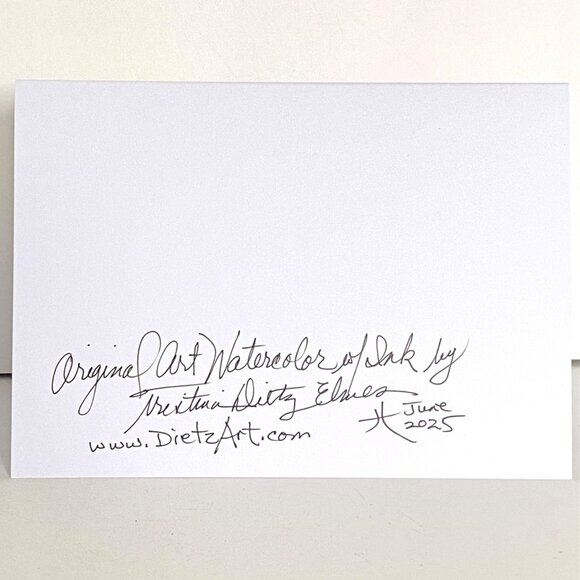 Original Art Watercolor w/ Ink by
Kristina Dietz Elmes
www.DietzArt.com
June
2025